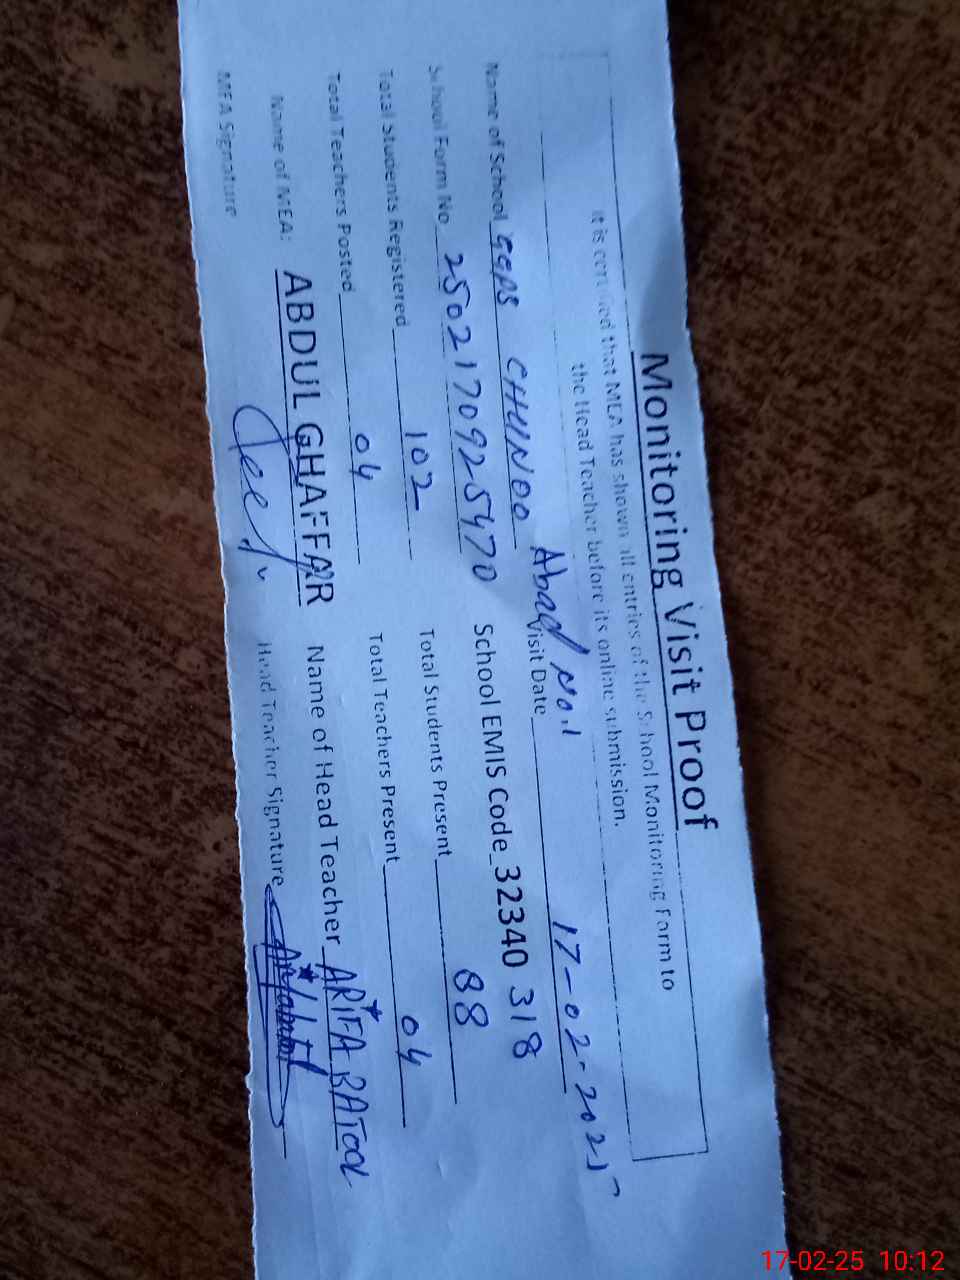 Monitoring Visit Proof
It is certified that MEA has shown all entries of the School Monitoring Form to
the Head Teacher before its online submission.
Name of School GGPS CHUNOO Abad No.1 Visit Date 17-02-2025
School Form No 2502170925470 School EMIS Code 32340 318
Total Students Registered 102 Total Students Present 88
Total Teachers Posted 04 Total Teachers Present 04
Name of MEA: ABDUL GHAFFAR Name of Head Teacher ARIFA BATOOL
MEA Signature Head Teacher Signature
17-02-25 10:12